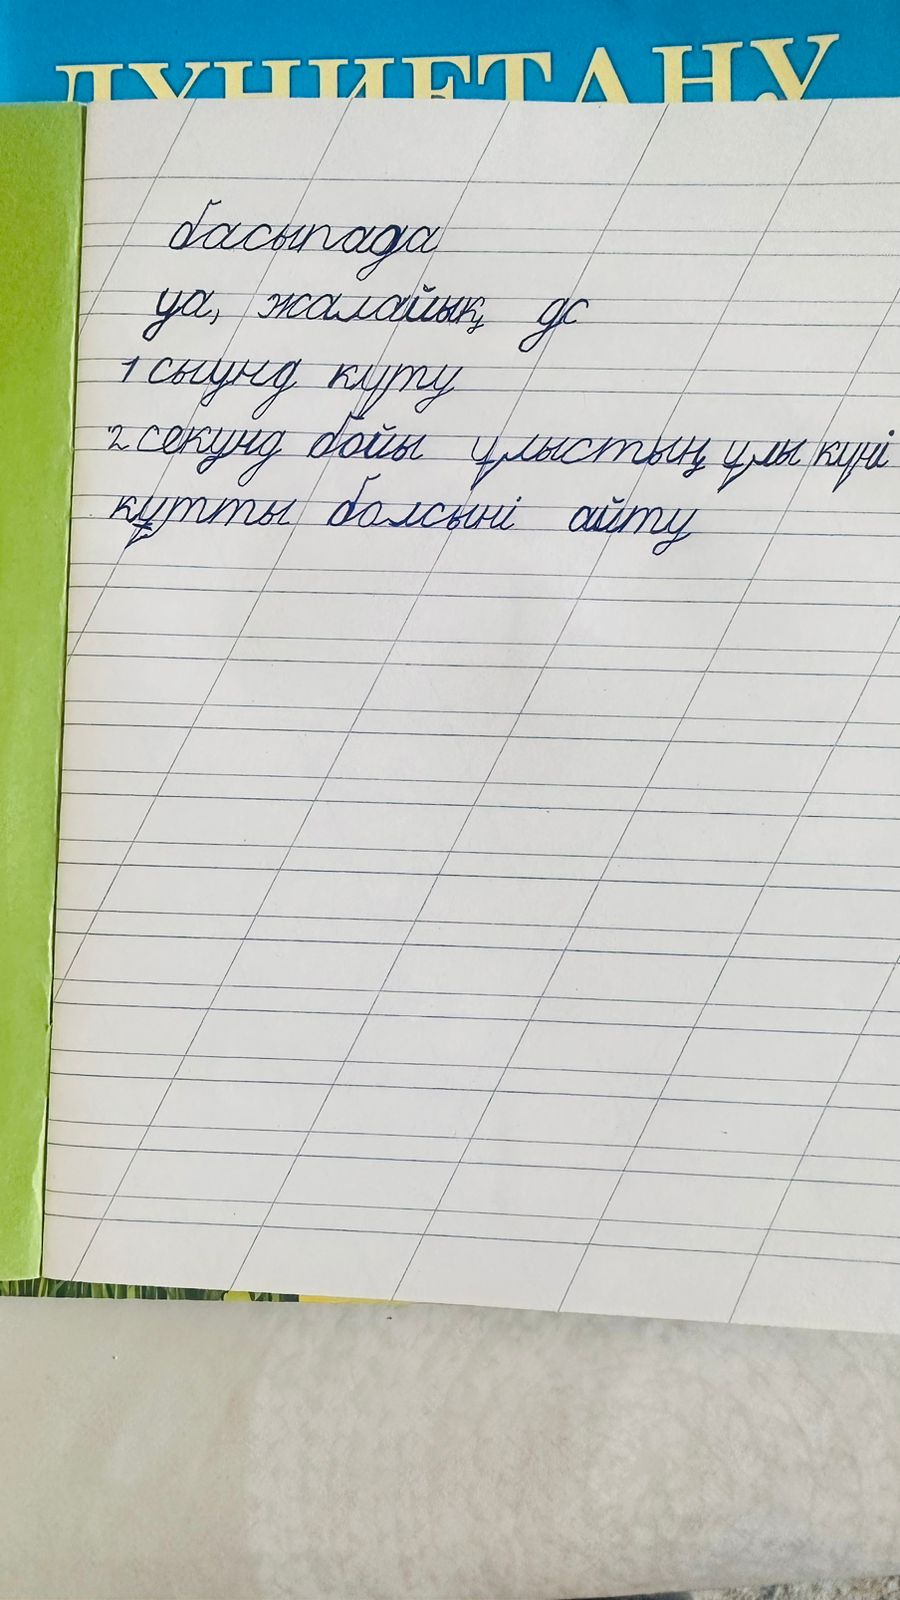 ДУНИЕТАНУ
басыпада
уа, жалайық дс
1 сыунд күту
2 секунд бойы ұлыстың ұлы күні
құтты болсыні айту